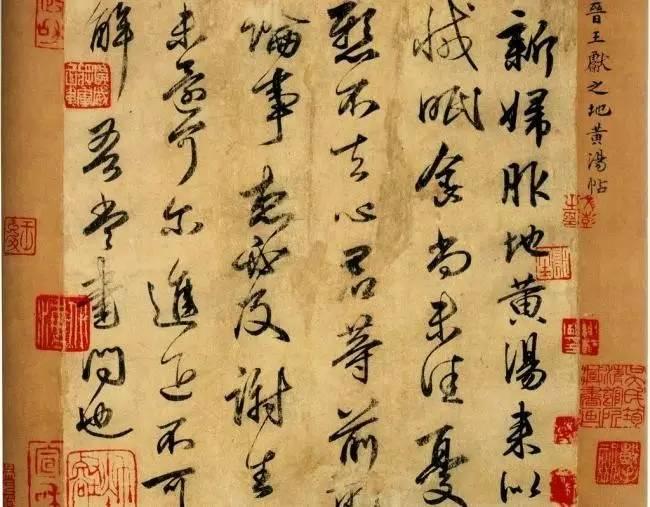 晉王獻之地黃湯帖
新婦服地黃湯來似
減眠食尚未佳憂
懸不去心君等前所
論事想必及謝生
未還何爾進退不可
解吾當書問也